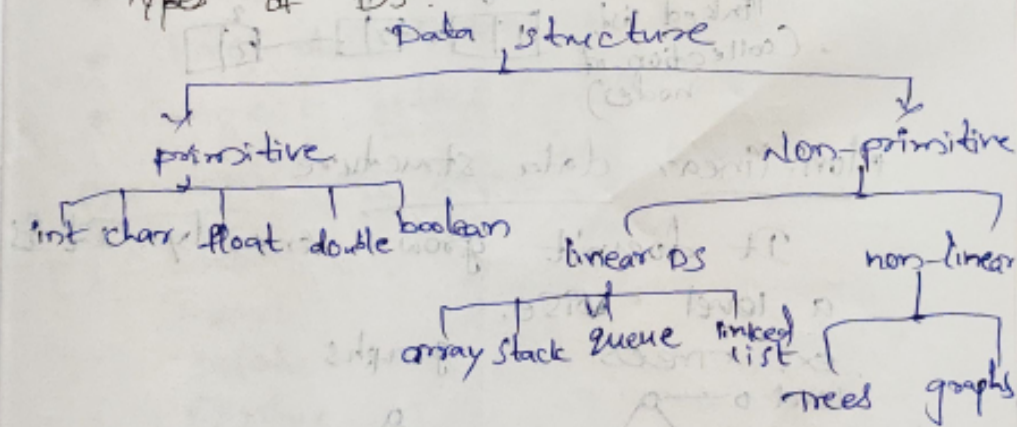 Types of DS.
Data structure
primitive Non-primitive
int char float double boolean
linear DS non-linear
array stack queue linked list
Trees graphs